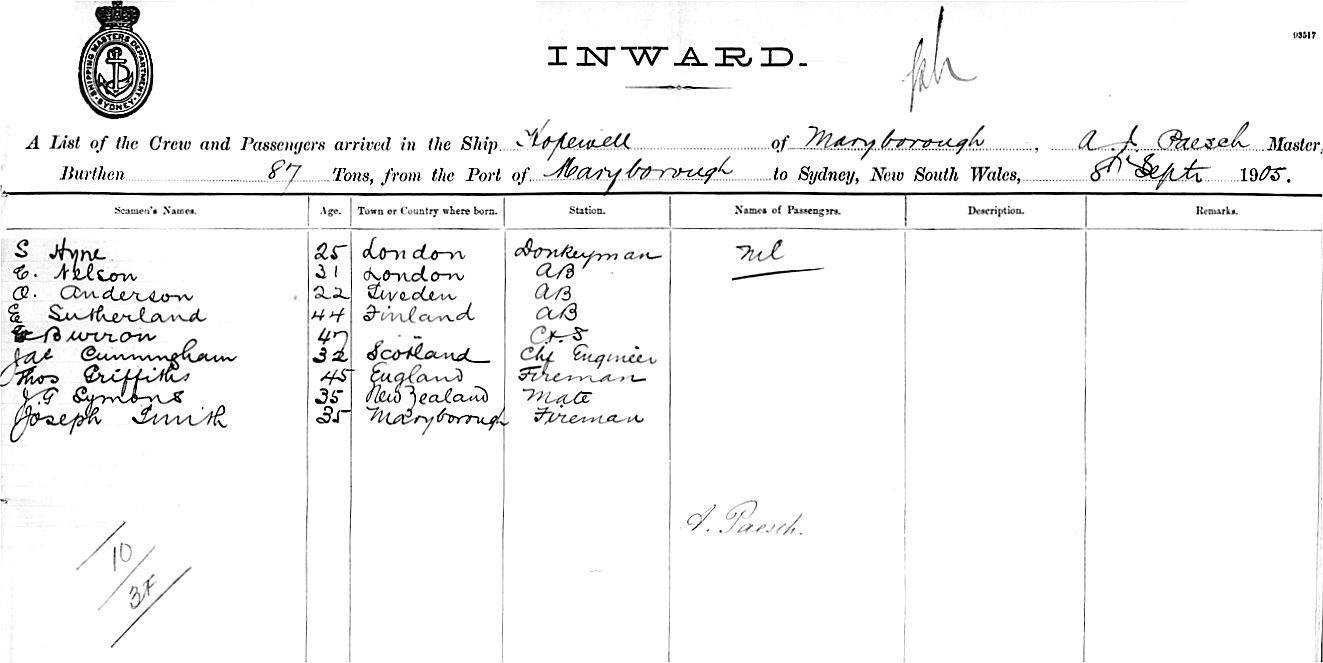 SHIPPING MASTERS DEPARTMENT SYDNEY
INWARD.
93517
A List of the Crew and Passengers arrived in the Ship Hopewell of Maryborough, A. J. Paesch Master,
Burthen 87 Tons, from the Port of Maryborough to Sydney, New South Wales, 8th Septr 1905.
Seamen's Names. Age. Town or Country where born. Station. Names of Passengers. Description. Remarks.
S Hyne 25 London Donkeyman nil
E. Nelson 31 London AB
O. Anderson 22 Sweden AB
E Sutherland 44 Finland AB
Burron 47 C&S
Jas Cunningham 32 Scotland Chf Engineer
Thos Griffiths 45 England Fireman
J.G Symons 35 New Zealand Mate
Joseph Smith 35 Maryborough Fireman
A. Paesch.
10
3F